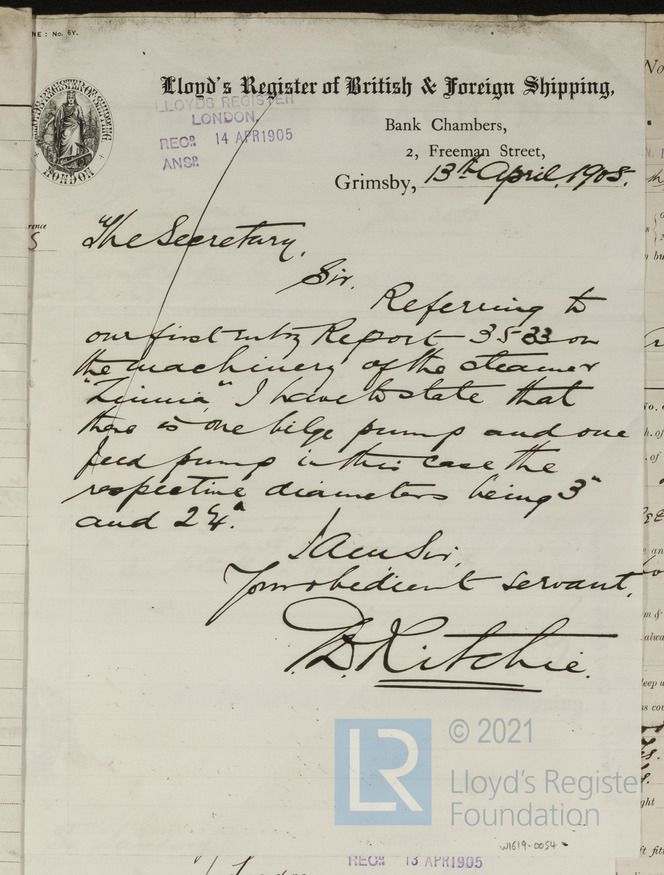 NE: No. 6Y.
Lloyd's Register of British & Foreign Shipping,
LLOYDS REGISTER
LONDON.
RECD. 14 APR 1905
ANSD.
LONDON
Bank Chambers,
2, Freeman Street,
Grimsby, 13th April, 1905.
The Secretary.
Sir.
Referring to
our first entry Report 3533 on
the machinery of the steamer
"Zinnia" I have to state that
there is one bilge pump and one
feed pump in this case the
respective diameters being 3"
and 2¼".
I am Sir,
Your obedient servant,
D. Ritchie.
© 2021
LR
Lloyd's Register
Foundation
W1619-0054
RECD. 13 APR 1905